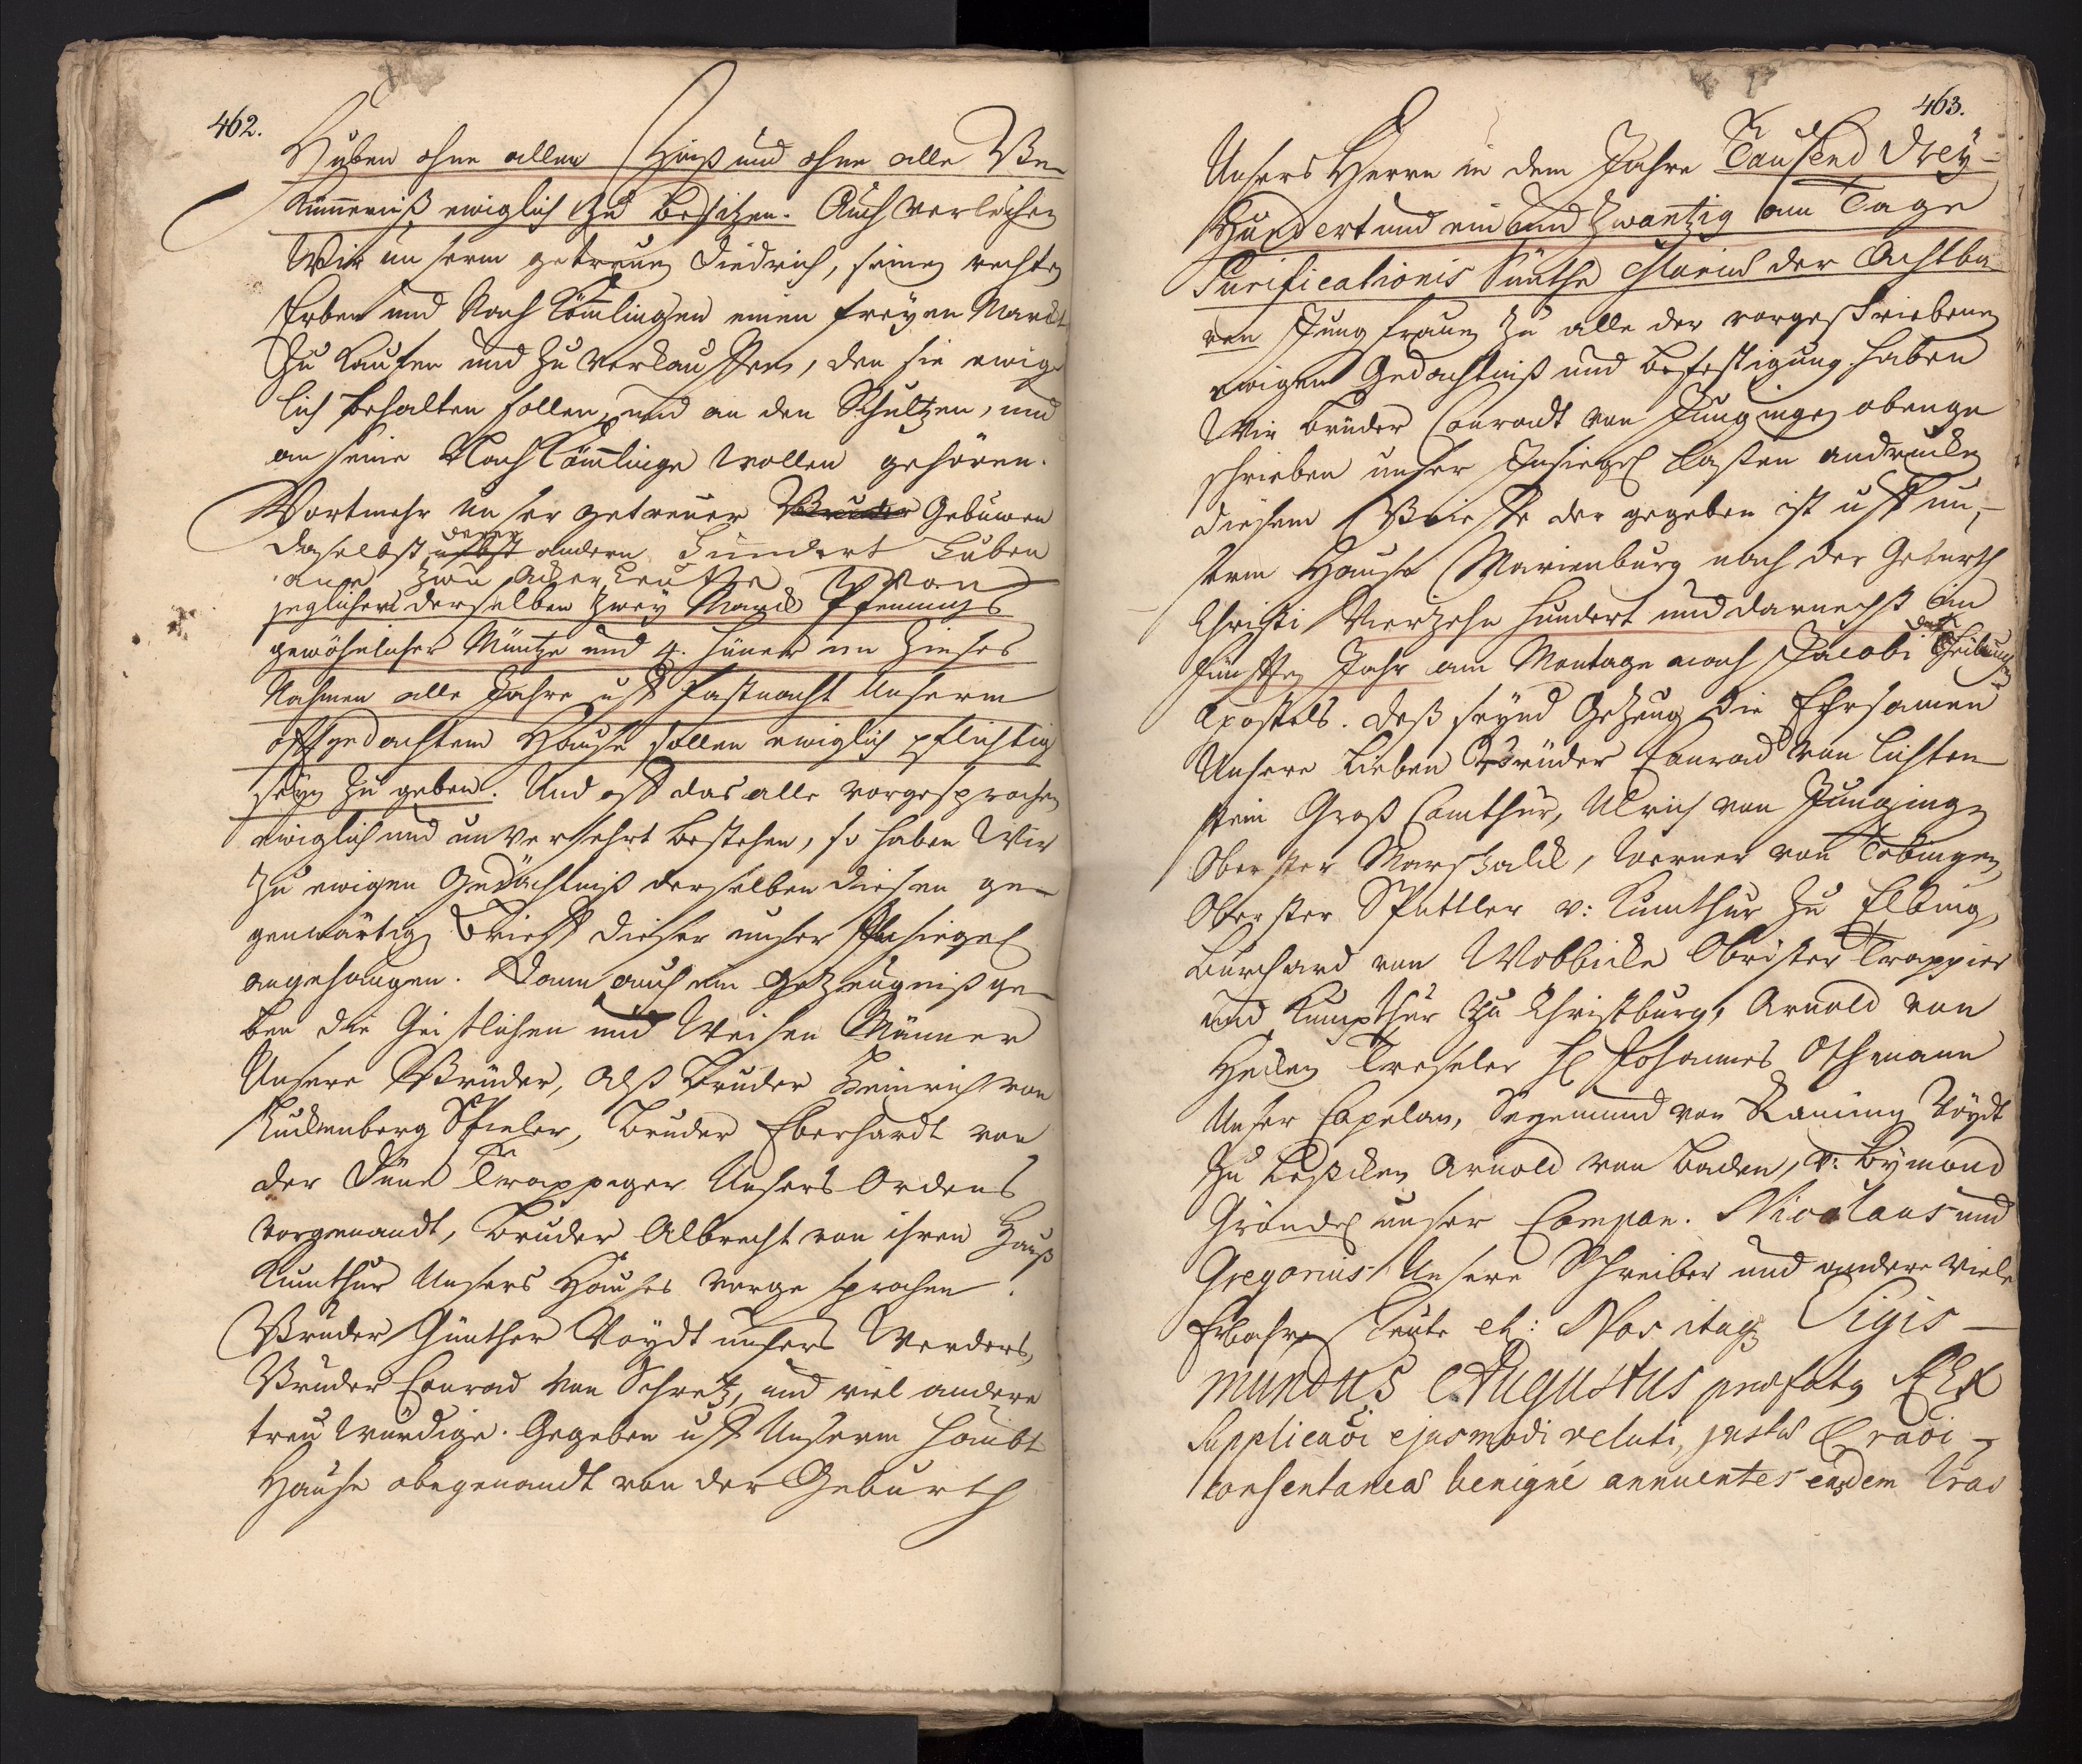 462.
Huben ohne allen Zinß und ohne alle Be-
kümmerniß ewiglich zu besitzen. Auch verleihen
Wir unserm getreuen Diedrich, seinen rechten
Erben und Nachkömlingen einen freyen Marckt
zu kaufen und zu verkauffen, den sie ewig
lich behalten sollen, und an den Schultzen, und
an seine Nachkömlinge wollen gehören.
Vortmehr unser getreuer Gebuwer
daselbst derer andern Hundert Huben
zwu von
jeglicher derselben zwey Marck Pfennings
gewöhnlicher Müntze und 4. Hüner in Zinses
Nahmen alle Jahre uff Fastnacht Unserm
offtgedachtem Hause sollen ewiglich pflichtig
seyn zu geben. Und uff das alle vorgesprochen
ewiglich und unversehrt bestehen, so haben Wir
zu ewigen Gedächtniß derselben diesen ge-
genwärtigen Brieff dieser unser Insiegel
angehangen. Dann auch ein Gezeugniß ge-
ben die Geistlichen und Weisen Männer
Unsere Brüder, Alß Bruder Heinrich von
Bruder Eberhardt von
der Düne Trappeyer Unsers Ordens
vorgenandt, Bruder Albrecht von ihren Hauß
Kumthur Unsers Hauses vorgesprochen.
Bruder Günther Voydt unsers Werders,
Bruder Conrad von Schretz, und viel andere
treu würdige. Gegeben uff Unserm Haubt
Hause obegenandt von der Geburth
463.
Unsers Herrn in dem Jahre Tausend Drey-
Hundert und ein und zwantzig am Tage
Purificationis Sünthe Mariae der Achtba
ren Jungfrauen zu alle der vorgeschriebenen
ewigen Gedächtniß und Befestigung haben
Wir Bruder Conradt von Jungingen obenge
schrieben unser Insiegel laßen andrucken
diesem Brieffe der gegeben ist uff un-
serm Hause Marienburg nach der Geburth
Christi Vierzehn hundert und darnechst im
Fünfften Jahr am Montage nach Jacobi des Heiligen
Apostels. Deß seynd Gezeug die Ehrsamen
Unsere lieben Brüder Conrad von Lichten
stein Groß Comthur, Ulrich von Jungingen
Oberster Marschalck, Werner von Tebingen
Oberster Spittler v: Kumthur zu Elbing,
Burchard von Wobbicke Obrister Trappier
und Kumpthur zu Christburg, Arnold von
Hecken Treseler H Johannes Ochmann
Unser Capelan, Segemund von Raming Voydt
zu Leßcken Arnold von Baden, v: Bymond
Gründel unser Compan. Nicolaus und
Gregorius Unsere Schreiber und andere viele
Erbahre Leute etc: Nos itaq Sigis-
mundus Augustus praefatg REX
Supplicaoi ejusmodi veluti, justae Eraoi
consentanea benigné annuentes easdem lras